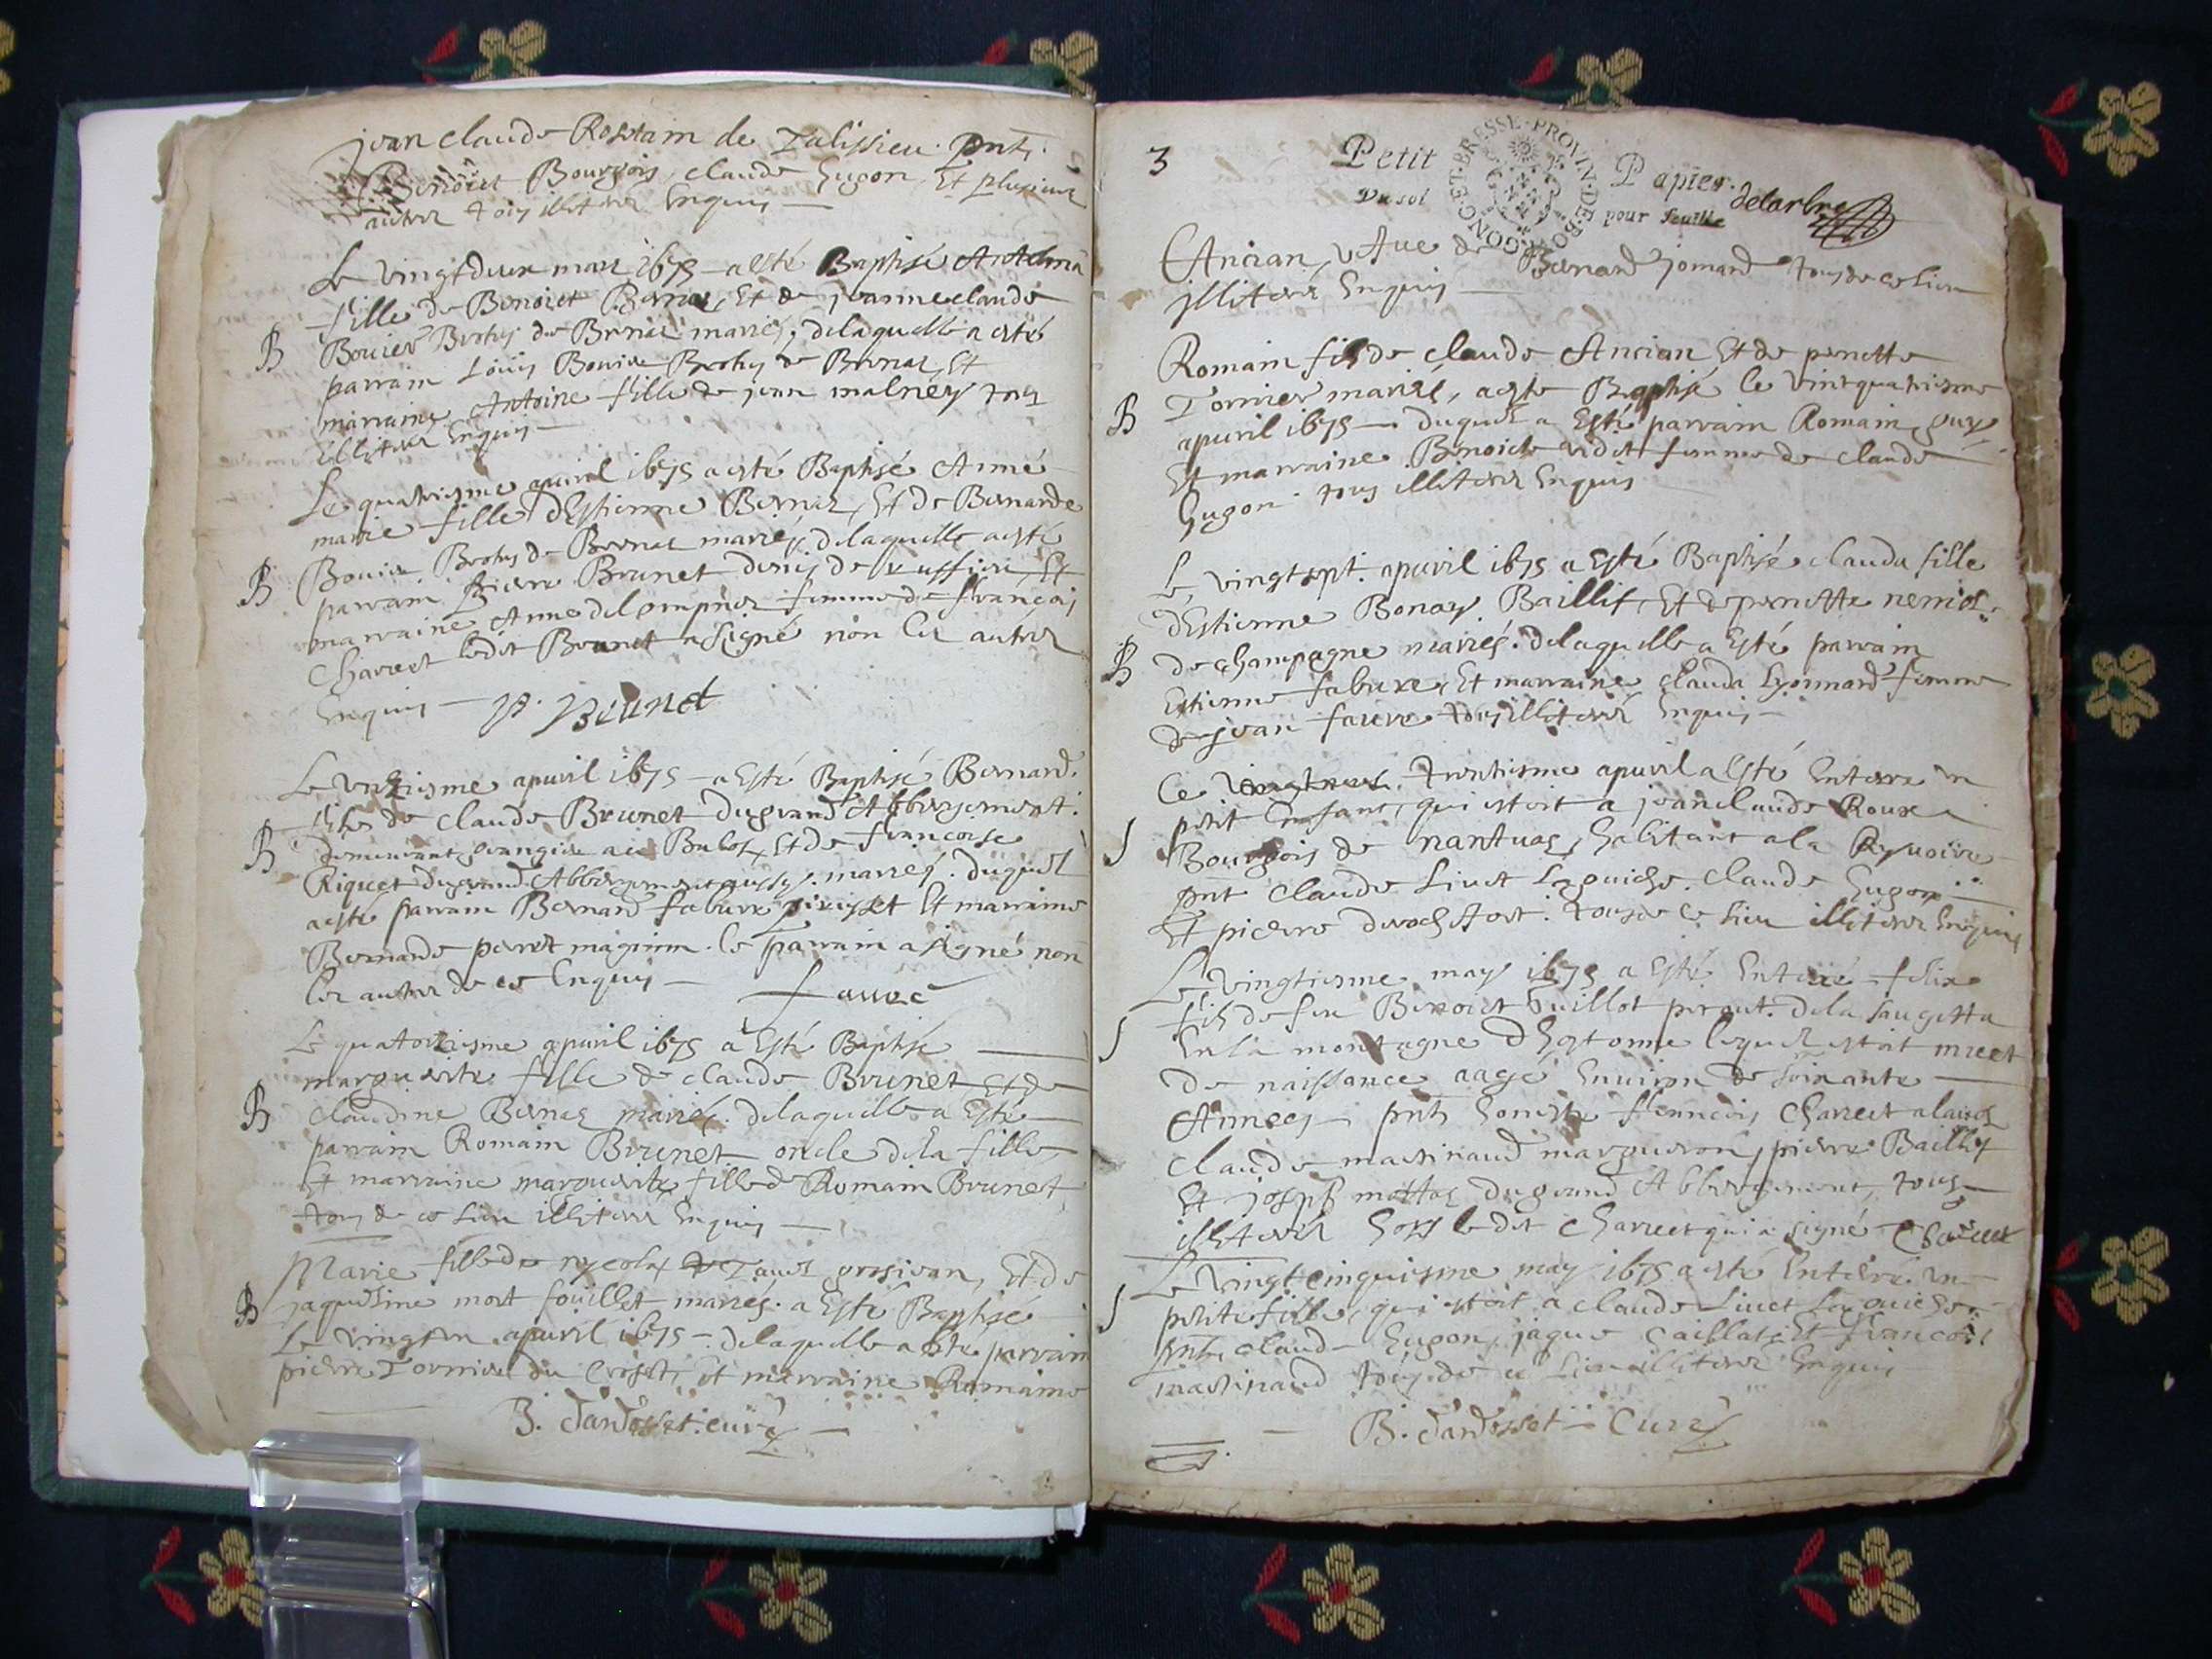 jean claude Rostain de Talissieu. pnts.
Benoict Bourgois, claude Gugon, Et plusieurs
autres tous illiteres Enquis —
Le vingtdeux mars 1675 — a esté Baptisé
fille de Benoict Bernar, Et de jeanne claude
B Bovier Brohy de Bernar mariés, delaquelle a esté
parrain Loüis Bovier Brohy de Bernar, Et
marraine Antoine fille de jean malney tous
illiteres Enquis —
Le quatriesme apuril 1675 a esté Baptisé Anne
marie fille d'Estienne Bernar, Et de Bernarde
B Bovier Brohy de Bernar mariés, delaquelle a esté
parrain pierre Brunet de ruffieu, Et
marraine Anne delompnes femme de françois
Charcot ledit Brunet a signé non les autres
Enquis — P. Brunet
Le unziesme apuril 1675 — a Esté Baptisé Bernard.
fils de claude Brunet du grand Abbergement.
B demeurant grangier a Et de francoise
Riquet du grand Abbergement aussy. mariés. duquel
a esté parrain Bernard fabure Et marraine
Bernarde perret magnin. le parrain a signé non
les autres de ce Enquis — favre
Le quatorziesme apuril 1675 a Esté Baptisé —
marguerite fille de claude Brunet, Et de
B claudine Bernar mariés. delaquelle a Esté
parrain Romain Brunet oncle dela fille
Et marraine marguerite fille de Romain Brunet
tous de ce Lieu illiteres Enquis —
Marie fille de nycolas grosjean, Et de
B jaquesine mort fouillet mariés. a Esté Baptisé
Le vingtun apuril 1675 — delaquelle a Esté parrain
pierre Tornier du Crozet, et marraine Romaine
B. dandosset. curé —
3 Petit Papier. delarbre
Du sol pour feuille
BOURGONG. ET. BRESSE. PROVIN. DE
Ancian, vefue de Bernard jomard tous de ce Lieu
jlliteres Enquis —
Romain fils de claude Ancian Et de pernette
B Tornier mariés, a esté Baptisé le vintquatriesme
apuril 1675 — duquel a Esté parrain Romain guy
Et marraine Benoicte vidot femme de claude
Gugon tous illiteres Enquis
Le vingtsept. apuril 1675 a Esté Baptisé clauda fille
d'Estienne Bonay Baillif, Et de pernette
B de champagne mariés. delaquelle a Esté parrain
Estienne fabure, Et marraine clauda Lyonnard femme
de jean faure tous illiteres Enquis —
Ce trentiesme apuril a Esté Enterré un
petit Enfant, qui estoit a jean claude Roux
S Bourgois de nantuas, habitant a la Ryuoire
pnt claude Livet Laguiche. claude Gugon
Et pierre derochefort. tous de ce Lieu illiteres Enquis
Le vingtiesme may 1675 a Esté Enterré felix
fils de feu Benoict Guillot peraut. dela Saugetta
S En la montagne d'hostonne lequel estoit muet
de naissance aagé Environ de soixante —
Annees — pnts honeste françois Charcot
claude martinaud margueron, pierre Bailly
Et joseph mottas du grand Abbergement, tous —
illiteres hors le dit Charcot qui a signé Charcot
Le vingtcinquiesme may 1675 a esté Enterré une
S petite fille, qui estoit a claude Livet Laguiche.
pnts claude Gugon, jaque Caillat, Et francois
martinaud tous de ce Lieu illiteres Enquis
— B. dandosset — Curé